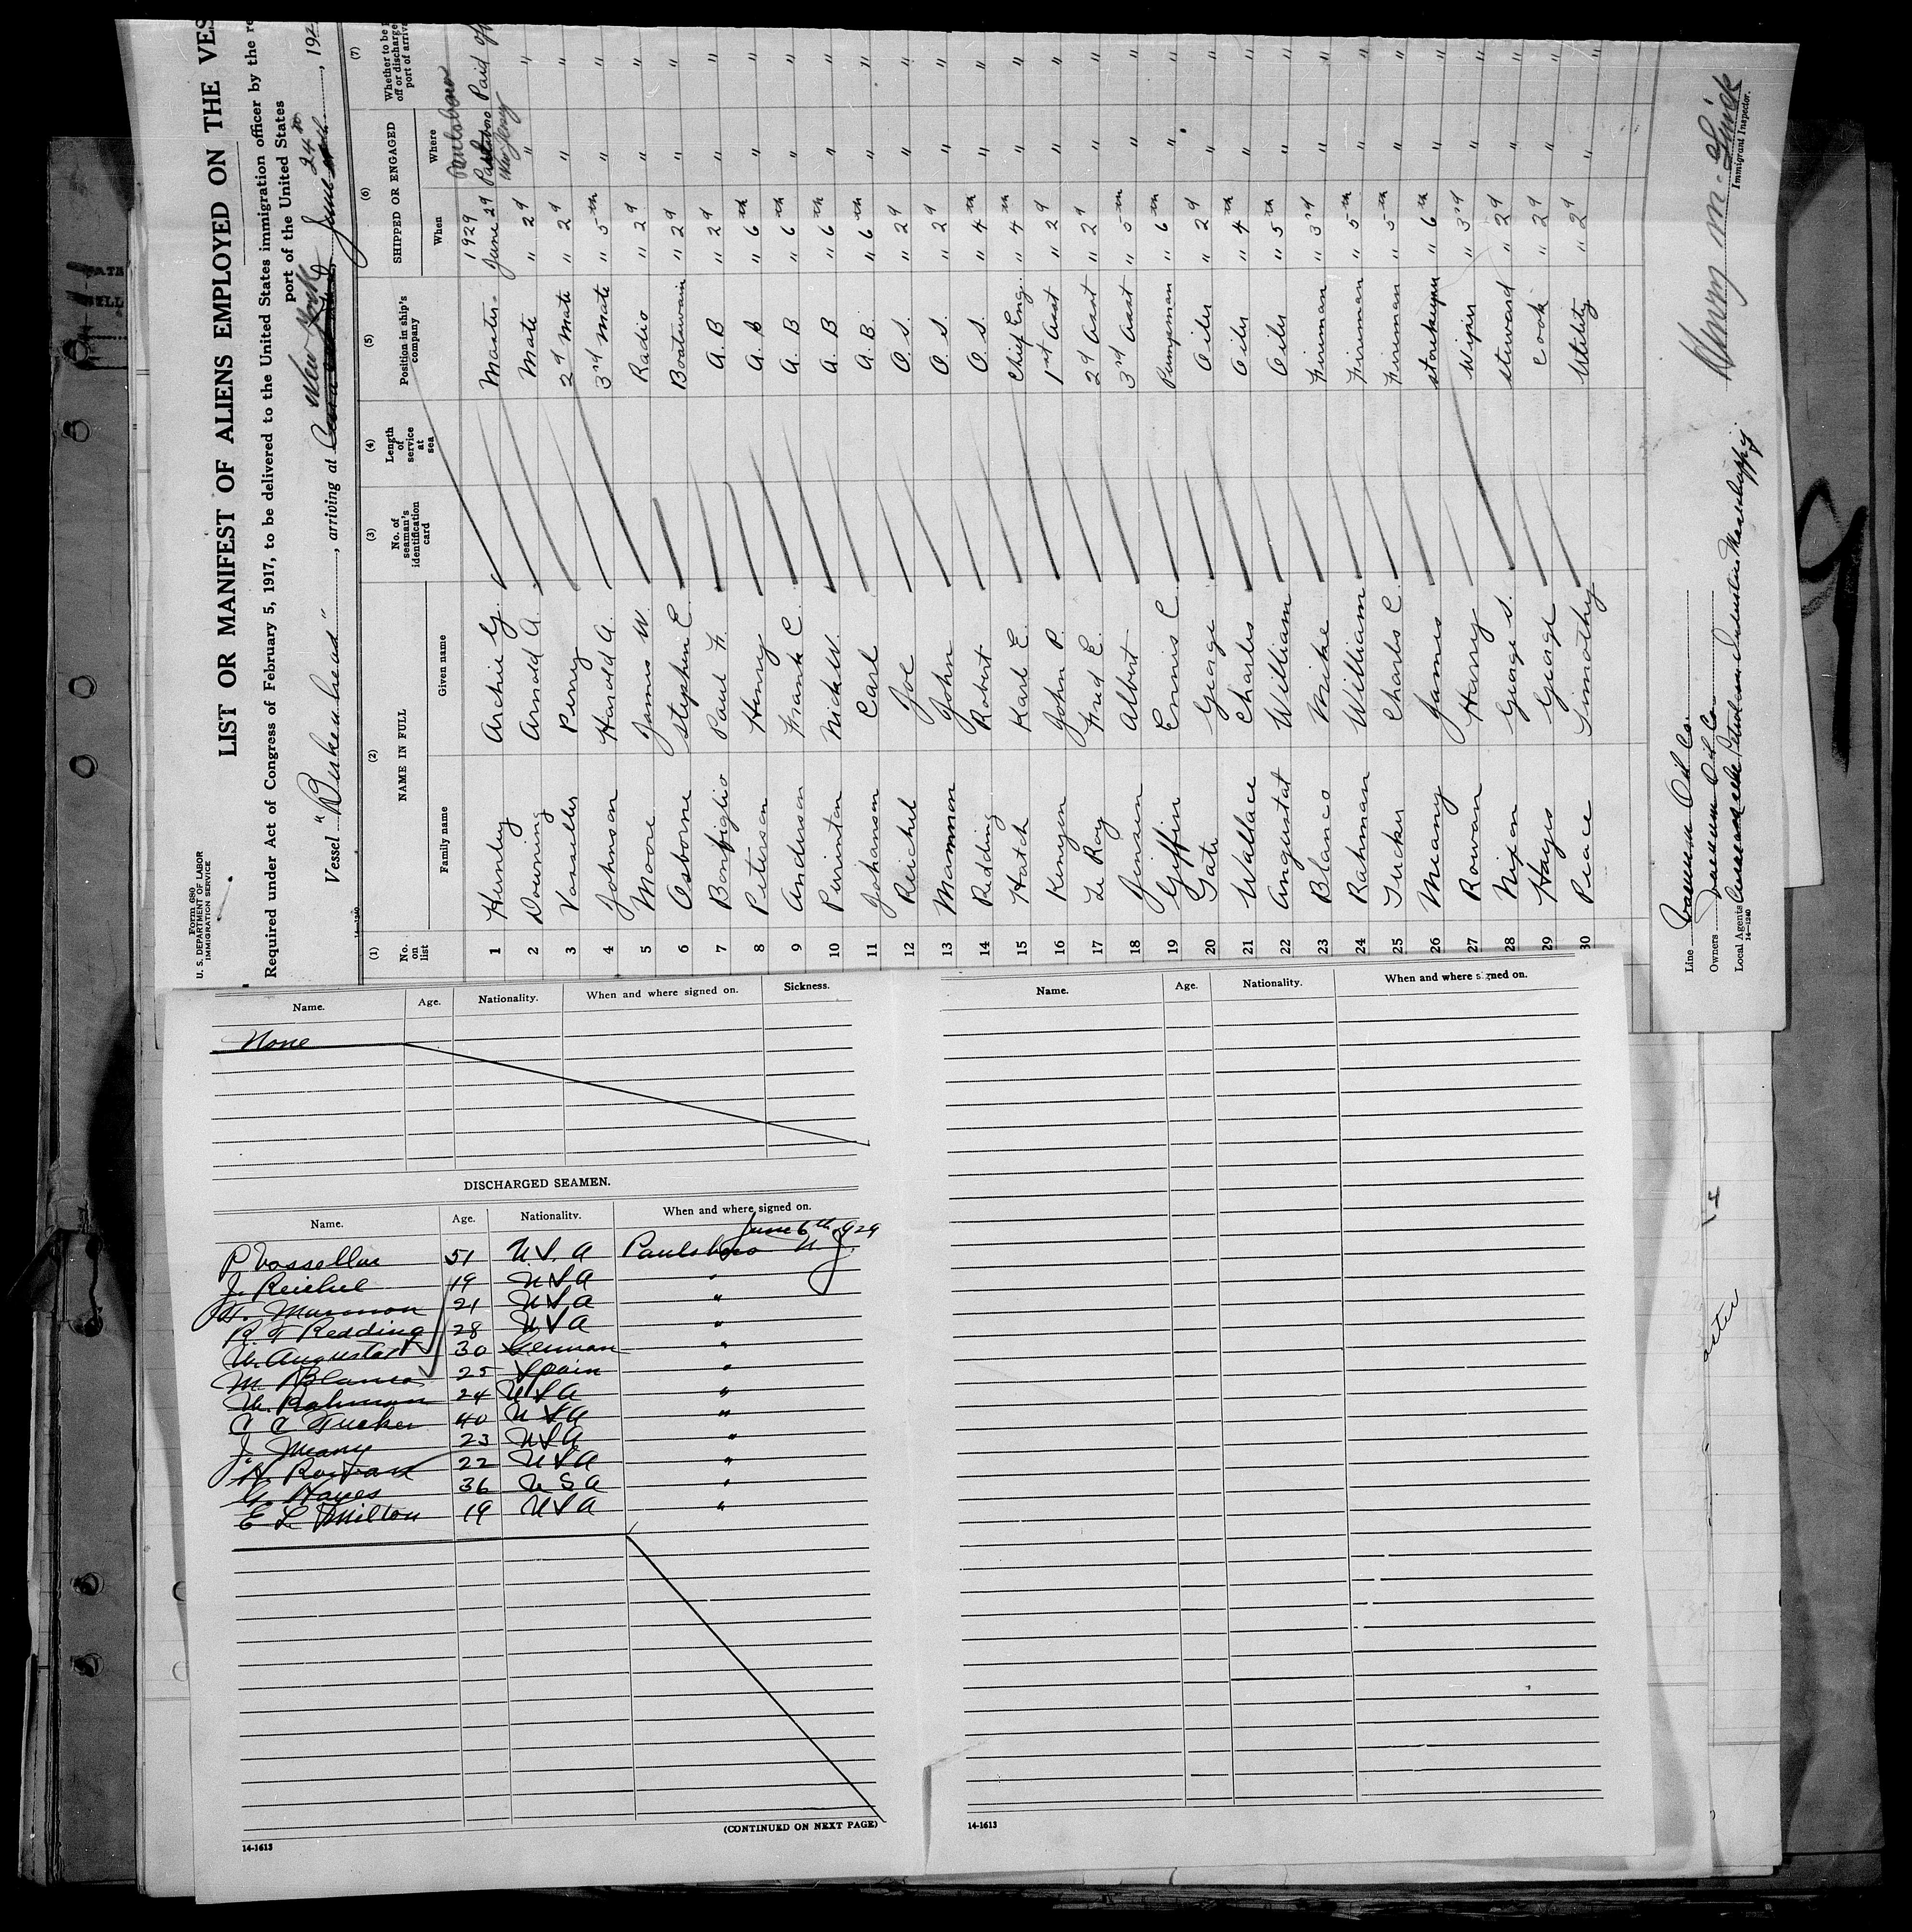 Form 680
U. S. DEPARTMENT OF LABOR
IMMIGRATION SERVICE
LIST OR MANIFEST OF ALIENS EMPLOYED ON THE VES
Required under Act of Congress of February 5, 1917, to be delivered to the United States immigration officer by the re
port of the United States
Vessel "Birkenhead", arriving at New York June 24th, 192
14-1240
(1) (2) (3) (4) (5) (6) (7)
No. on list NAME IN FULL No. of seaman's identification card Length of service at sea Position in ship's company SHIPPED OR ENGAGED Whether to be off or discharge port of arriva
Family name Given name When Where
1929 Paulsboro
1 Hunley Archie G. Master June 29 Paulsboro New Jersey Paid off
2 Downing Arnold A. Mate " 2d " "
3 Vassellis Perry 2d Mate " 2d " "
4 Johnson Harold A. 3rd Mate " 5th " "
5 Moore James W. Radio " 2d " "
6 Osborne Stephen E. Boatswain " 2d " "
7 Bonfiglio Paul F. A. B " 2d " "
8 Peterson Henry A. B " 6th " "
9 Anderson Frank C. A. B " 6th " "
10 Purrinton Nick W. A. B " 6th " "
11 Johanson Carl A. B. " 6th " "
12 Reichel Joe O. S. " 2d " "
13 Mammon John O. S. " 2d " "
14 Redding Robert O. S. " 4th " "
15 Hatch Karl E. Chief Eng. " 4th " "
16 Kenyon John P. 1st Asst " 2d " "
17 Le Roy Fred E. 2d Asst " 2d " "
18 Jensen Albert 3rd Asst " 5th " "
19 Griffin Ennis C. Pumpman " 6th " "
20 Gate George Oiler " 2d " "
21 Wallace Charles Oiler " 4th " "
22 Angustat William Oiler " 5th " "
23 Blanco Mike Fireman " 3rd " "
24 Rahman William Fireman " 5th " "
25 Tucker Charles C. Fireman " 5th " "
26 Meany James Storekeeper " 6th " "
27 Rowan Harry Wiper " 3rd " "
28 Nixon George S. Steward " 2d " "
29 Hayes George Cook " 2d " "
30 Peace Timothy Utility " 2d " "
Line Vacuum Oil Co.
Owners Vacuum Oil Co.
Local Agents
14-1240
Henry
Immigrant Inspector.
Name. Age. Nationality. When and where signed on. Sickness.
None
DISCHARGED SEAMEN.
Name. Age. Nationality. When and where signed on.
June 6th 1929
P. Vassellis 51 U.S.A Paulsboro N. J.
J. Reichel 19 U S A "
Mammon 21 U S A "
R. T Redding 28 U S A "
W. Angustat 30 German "
M. Blanco 25 Spain "
W. Rahman 24 U S A "
C C Tucker 40 U S A "
J. Meany 23 U S A "
H. Rowan 22 U S A "
G. Hayes 36 U S A "
E L Milton 19 U S A "
(CONTINUED ON NEXT PAGE)
14-1613
Name. Age. Nationality. When and where signed on.
14-1613